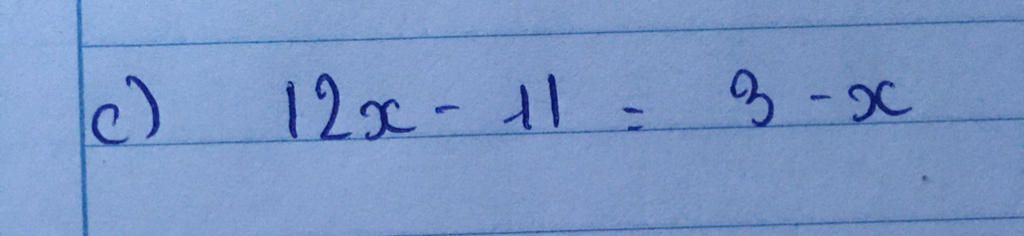 c) 12x - 11 = 3 - x